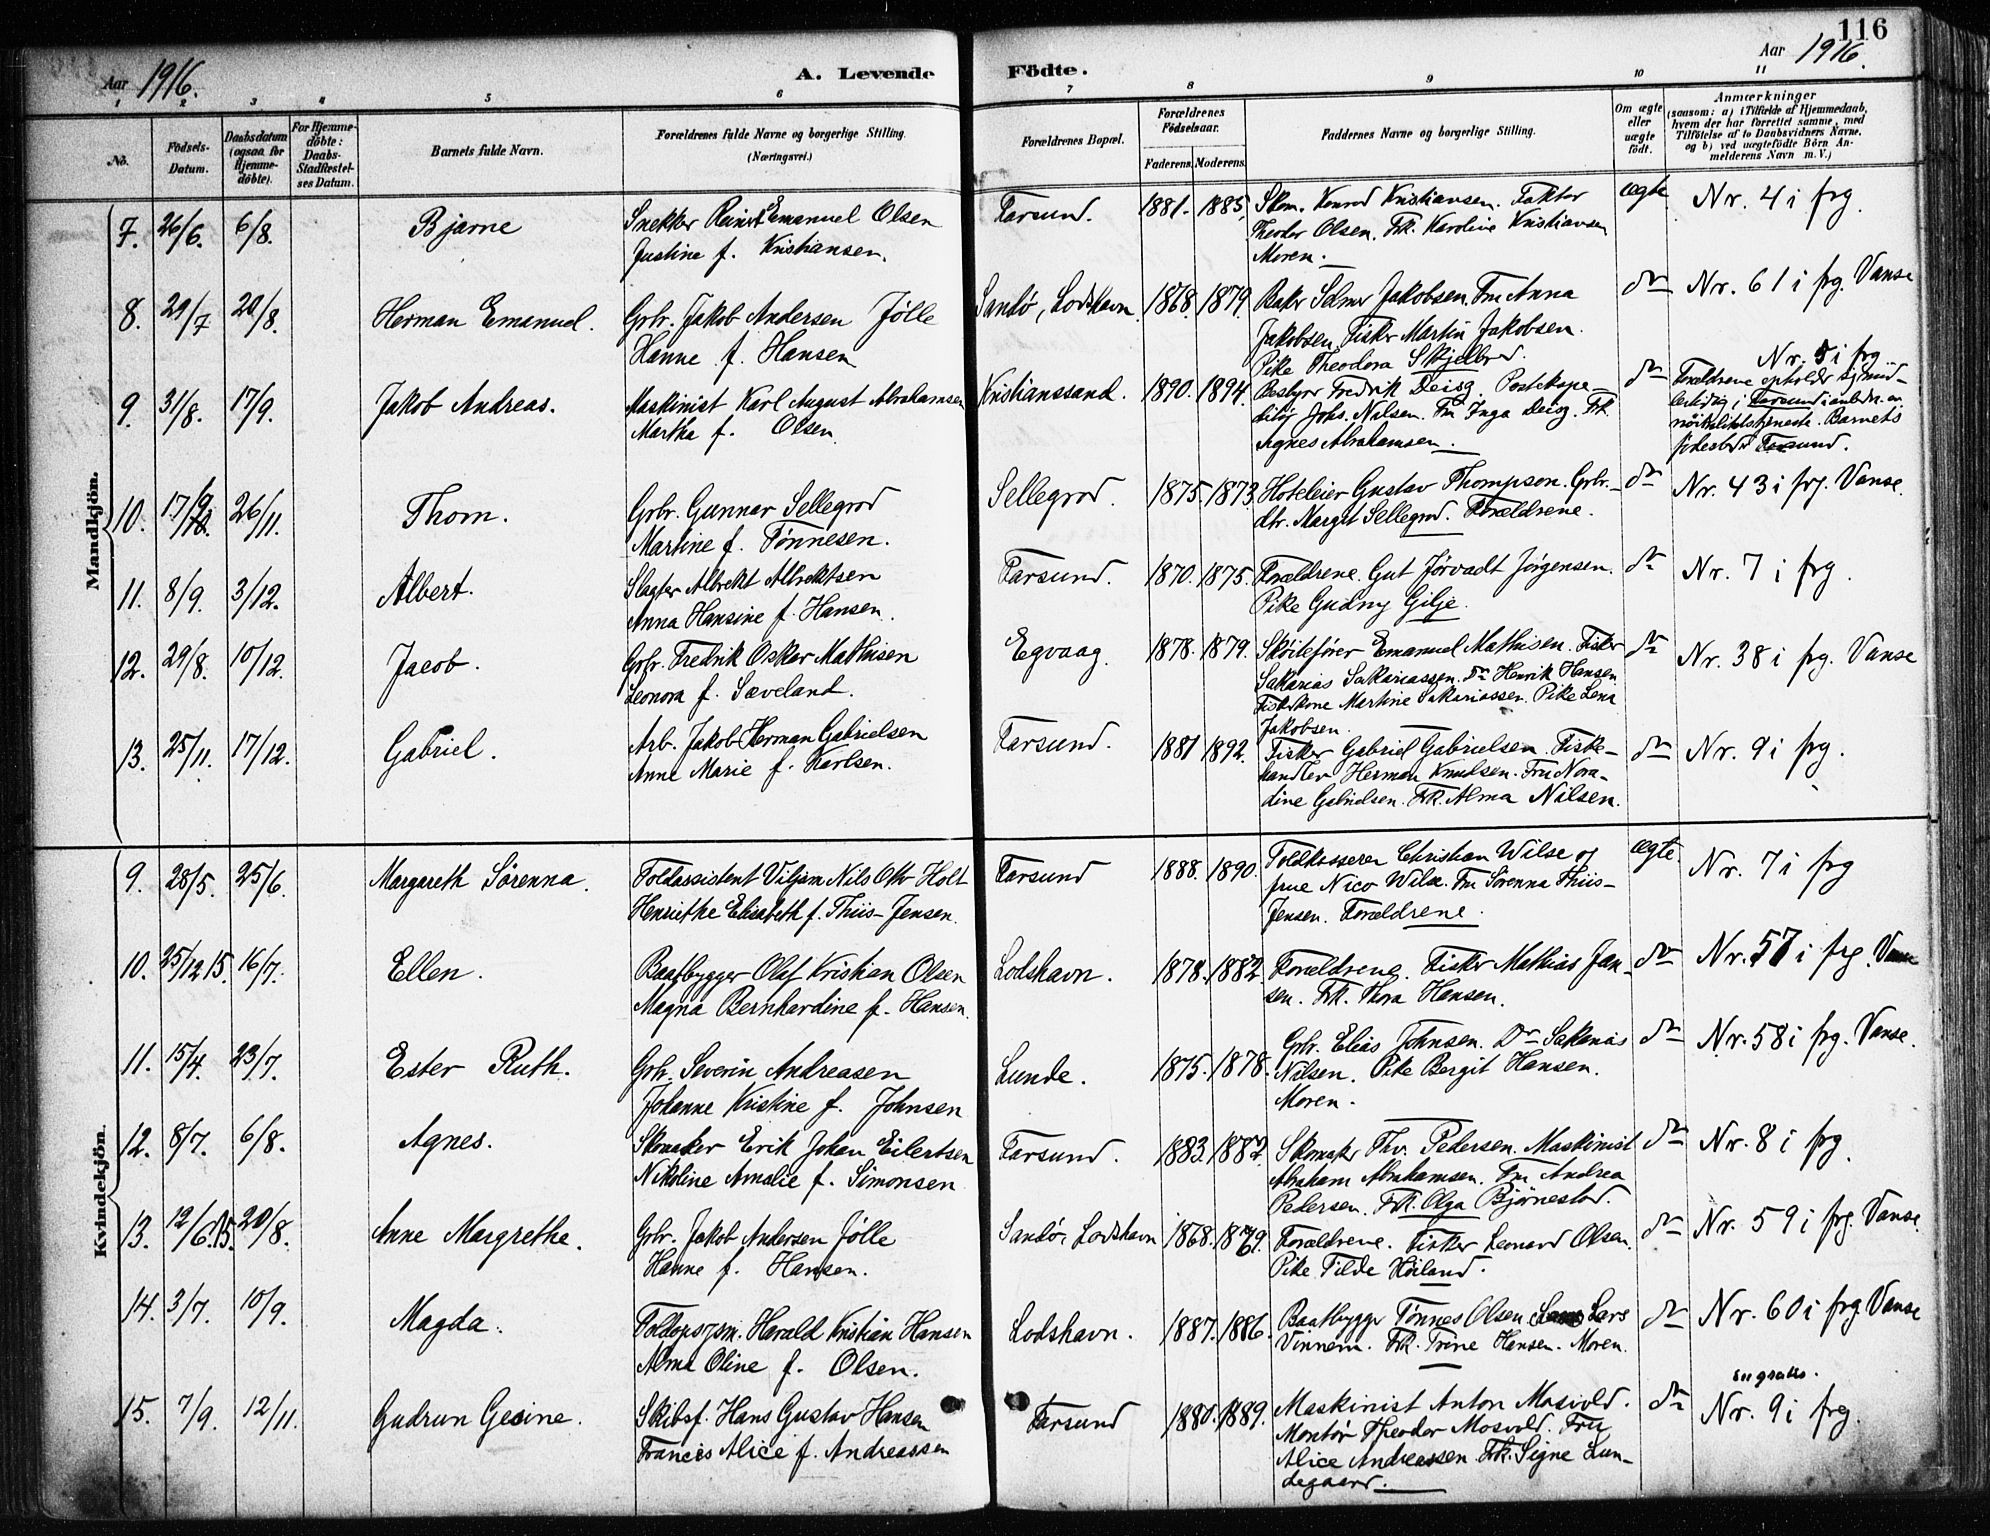 116
Aar 1916.
A. Levende Födte.
Aar 1916.
1 2 3 4 5 6 7 8 9 10 11
No.
Födsels-Datum.
Daabsdatum (ogsaa for Hjemme-döbte).
For Hjemme-döbte: Daabs-Stadfæstel-ses Datum.
Barnets fulde Navn.
Forældrenes fulde Navne og borgerlige Stilling. (Næringsvei.)
Forældrenes Bopæl.
Forældrenes Födselsaar.
Faderens. Moderens.
Faddernes Navne og borgerlige Stilling.
Om ægte eller uægte födt.
Anmærkninger
(saasom: a) i Tilfælde af Hjemmedaab,
hvem der har forrettet samme, med
Tilföielse af to Daabsvidners Navne,
og b) ved uægtefödte Börn An-
melderens Navn m. V.)
Mandkjön.
7. 26/6. 6/8. Bjarne
Snekker Reinert Emanuel Olsen
Justine f. Kristiansen.
Farsund. 1881. 1885.
Skom. Konrad Kristiansen. Faktor
Theodor Olsen. Frk. Karoline Kristiansen
Moren.
ægte Nr. 4 i frg.
8. 29/7 20/8. Herman Emanuel.
Grbr. Jakob Andersen Jølle
Hanne f. Hansen
Sandø, Lodshavn. 1868. 1879.
Baker Selmer Jakobsen. Fru Anna
Jakobsen. Fisker Martin Jakobsen.
Pike Theodora Skjelbred.
do Nr. 61 i frg. Vanse
9. 31/8. 17/9. Jakob Andreas.
Maskinist Karl August Abrahamsen
Martha f. Olsen
Kristianssand. 1890. 1894.
Bestyrer Fredrik Deisz. Postekspe-
ditør Johs. Nilsen. Fru Inga Deisz. Frk.
Agnes Abrahamsen.
do Nr. 5 i frg.
Forældrene opholder sig mid-
lertidig i Farsund i anledn. en
nøitralitetstjeneste. Barnets
fødested: Farsund.
10. 17/9 26/11. Thom.
Grbr. Gunnar Sellegrod
Martine f. Tønnesen.
Sellegrod. 1875. 1873.
Hoteleier Gustav Thompson. Grbr.-
dtr. Margit Sellegrod. Forældrene.
do Nr. 43 i frg. Vanse.
11. 8/9. 3/12. Albert.
Slagter Albrekt Albrektsen
Anna Hansine f. Hansen.
Farsund. 1870. 1875.
Forældrene. Gut Jørvadt Jörgensen.
Pike Gudny Gilje.
do Nr. 7 i frg.
12. 29/8. 10/12. Jacob.
Grbr. Fredrik Oskar Mathisen
Leonora f. Sæveland.
Egvaag. 1878. 1879.
Skøitefører Emanuel Mathisen. Fisker
Sakarias Sakariassen. do Henrik Hansen
Fiskerkone Martine Sakariassen. Pike Lena
Jakobsen.
do Nr. 38 i frg. Vanse
13. 25/11. 17/12. Gabriel.
Arb. Jakob Herman Gabrielsen
Anne Marie f. Karlsen.
Farsund. 1881 1892.
Fisker Gabriel Gabrielsen. Fiske-
handler Herman Knudsen. Fru Nora-
dine Gabrielsen. Frk. Alma Nilsen.
do Nr. 9 i frg.
Kvindekjön.
9. 28/5. 25/6. Margareth Sörenna.
Toldassistent Viljam Nils Otto Holt
Henriette Elisabeth f. Thiis-Jensen.
Farsund 1888. 1890.
Toldkasserer Christian Wilse og
frue Nico Wilse. Fru Sörenna Thiis-
Jensen. Forældrene.
ægte. Nr. 7 i frg
10. 25/12 15. 16/7. Ellen.
Baatbygger Olaf Kristian Olsen
Magna Bernhardine f. Hansen.
Lodshavn. 1878. 1882.
Forældrene. Fisker Mathias Jan-
sen. Frk. Thora Hansen.
do Nr. 57 i frg. Vanse
11. 15/4. 23/7. Ester Ruth.
Grbr. Severin Andreasen
Johanne Kristine f. Johnsen
Lunde. 1875. 1878.
Grbr. Elias Johnsen. Do Sakarias
Nilsen. Pike Bergit Hansen.
Moren.
do Nr. 58 i frg. Vanse.
12. 8/7. 6/8. Agnes.
Skomaker Erik Johan Eilertsen
Nikoline Amalie f. Simonsen
Farsund. 1883. 1882.
Skomaker Thv. Pedersen. Maskinist
Abraham Abrahamsen. Fru Andrea
Pedersen. Frk. Olga Bjørnestad.
do Nr. 8 i frg.
13. 12/6.15. 20/8. Anne Margrethe.
Grbr. Jakob Andersen Jølle
Hanne f. Hansen.
Sandø, Lodshavn 1868. 1879.
Forældrene. Fisker Leonard Olsen.
Pike Tilde Høiland.
do Nr. 59 i frg. Vanse.
14. 3/7. 10/9. Magda.
Toldopsysm. Harald Kristian Hansen
Alma Oline f. Olsen.
Lodshavn. 1887. 1886.
Baatbygger Tønnes Olsen. Lars
Vinnem. Frk. Trine Hansen. Moren.
do Nr. 60 i frg. Vanse
15. 7/9. 12/11. Gudrun Gesine.
Skibsf. Hans Gustav Hansen
Frances Alice f. Andreassen
Farsund 1880. 1889.
Maskinist Anton Mosvold.
Montør Theodor Mosvold. Fru
Alice Andreassen. Frk. Signe Lun-
degaard.
do Nr. 9 i frg.